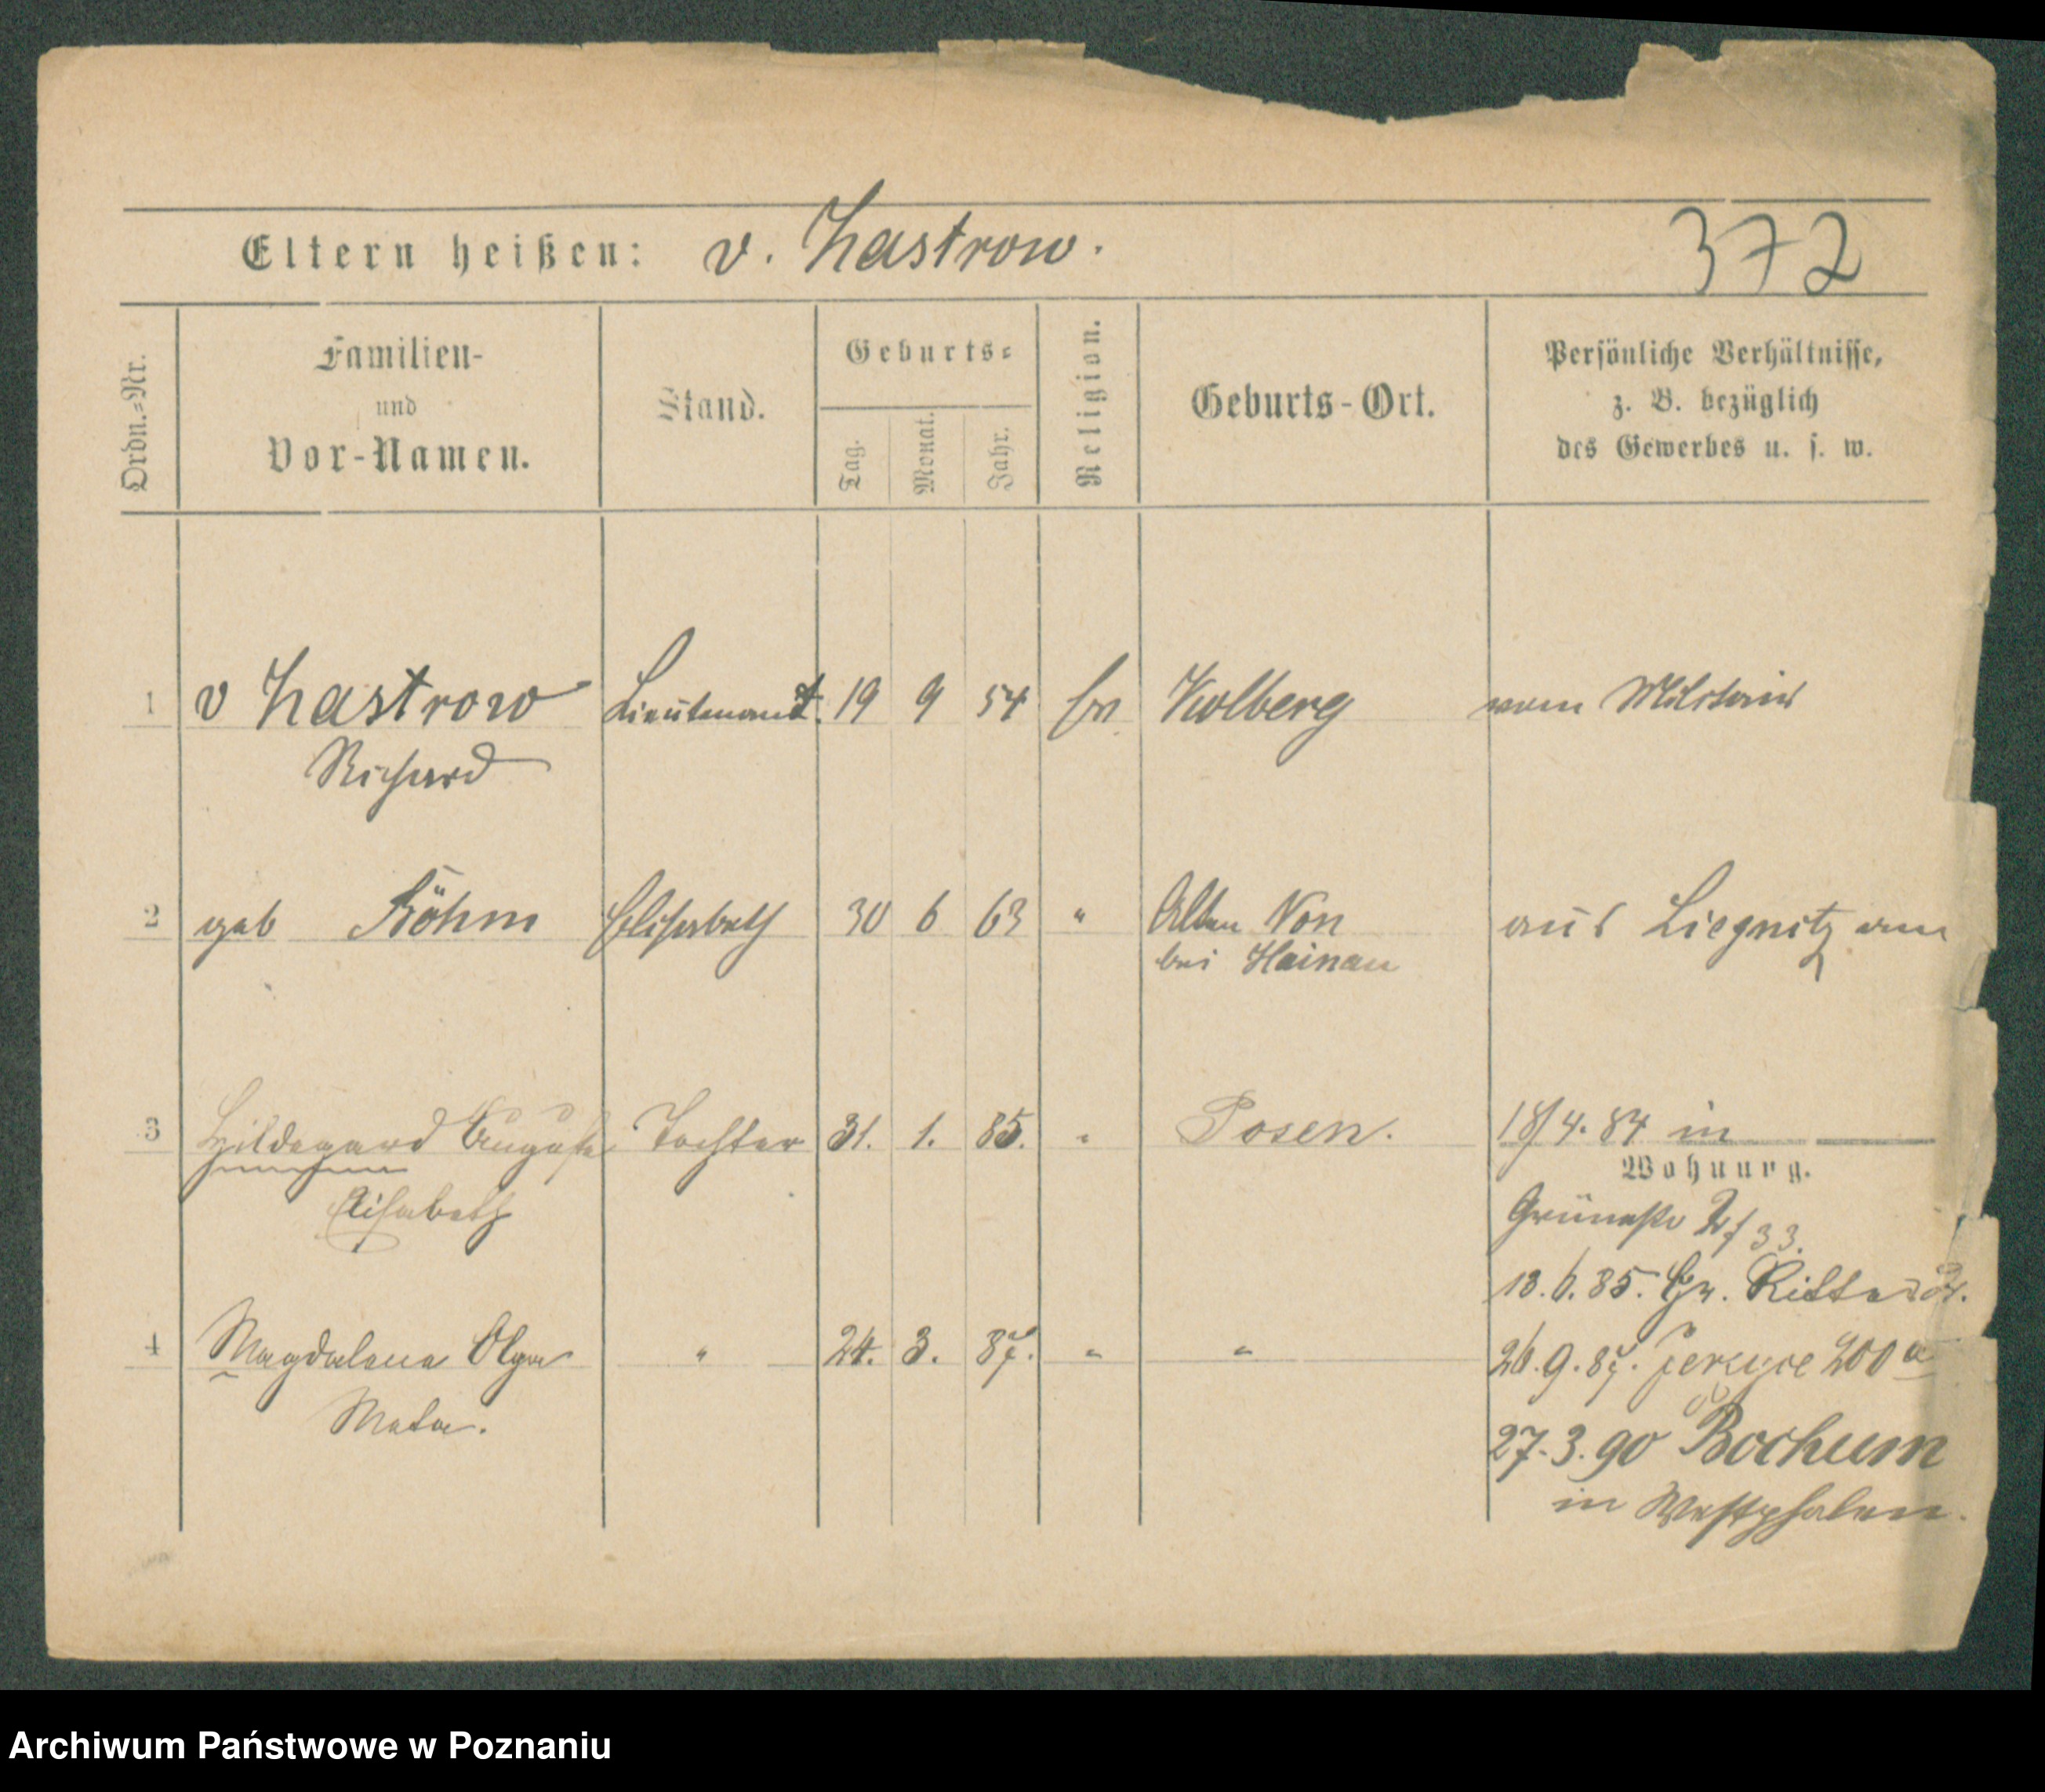 Eltern heißen: v. Zastrow. 372
Ordn.=Nr.
Familien-
und
Vor-Namen.
Stand.
Geburts=
Tag.
Monat.
Jahr.
Religion.
Geburts-Ort.
Persönliche Verhältnisse,
z. B. bezüglich
des Gewerbes u. s. w.
1 v Zastrow Lieutenant. 19 9 54 Kolberg vom
Richard
2 geb Böhm Elisabeth 30 6 63 " aus Liegnitz am
bei Hainau
3 Hildegard Auguste Tochter 31. 1. 85. " Posen. 18/4. 84 in
Wohnung.
Elisabeth
Grünestr 2/33.
13.6.85. Gr. Ritterstr.
4 Magdalena Olga " 24. 3. 87. " " 26.9.87. 200 a
Meta.
27.3.90 Bochum
in Westphalen.
Archiwum Państwowe w Poznaniu